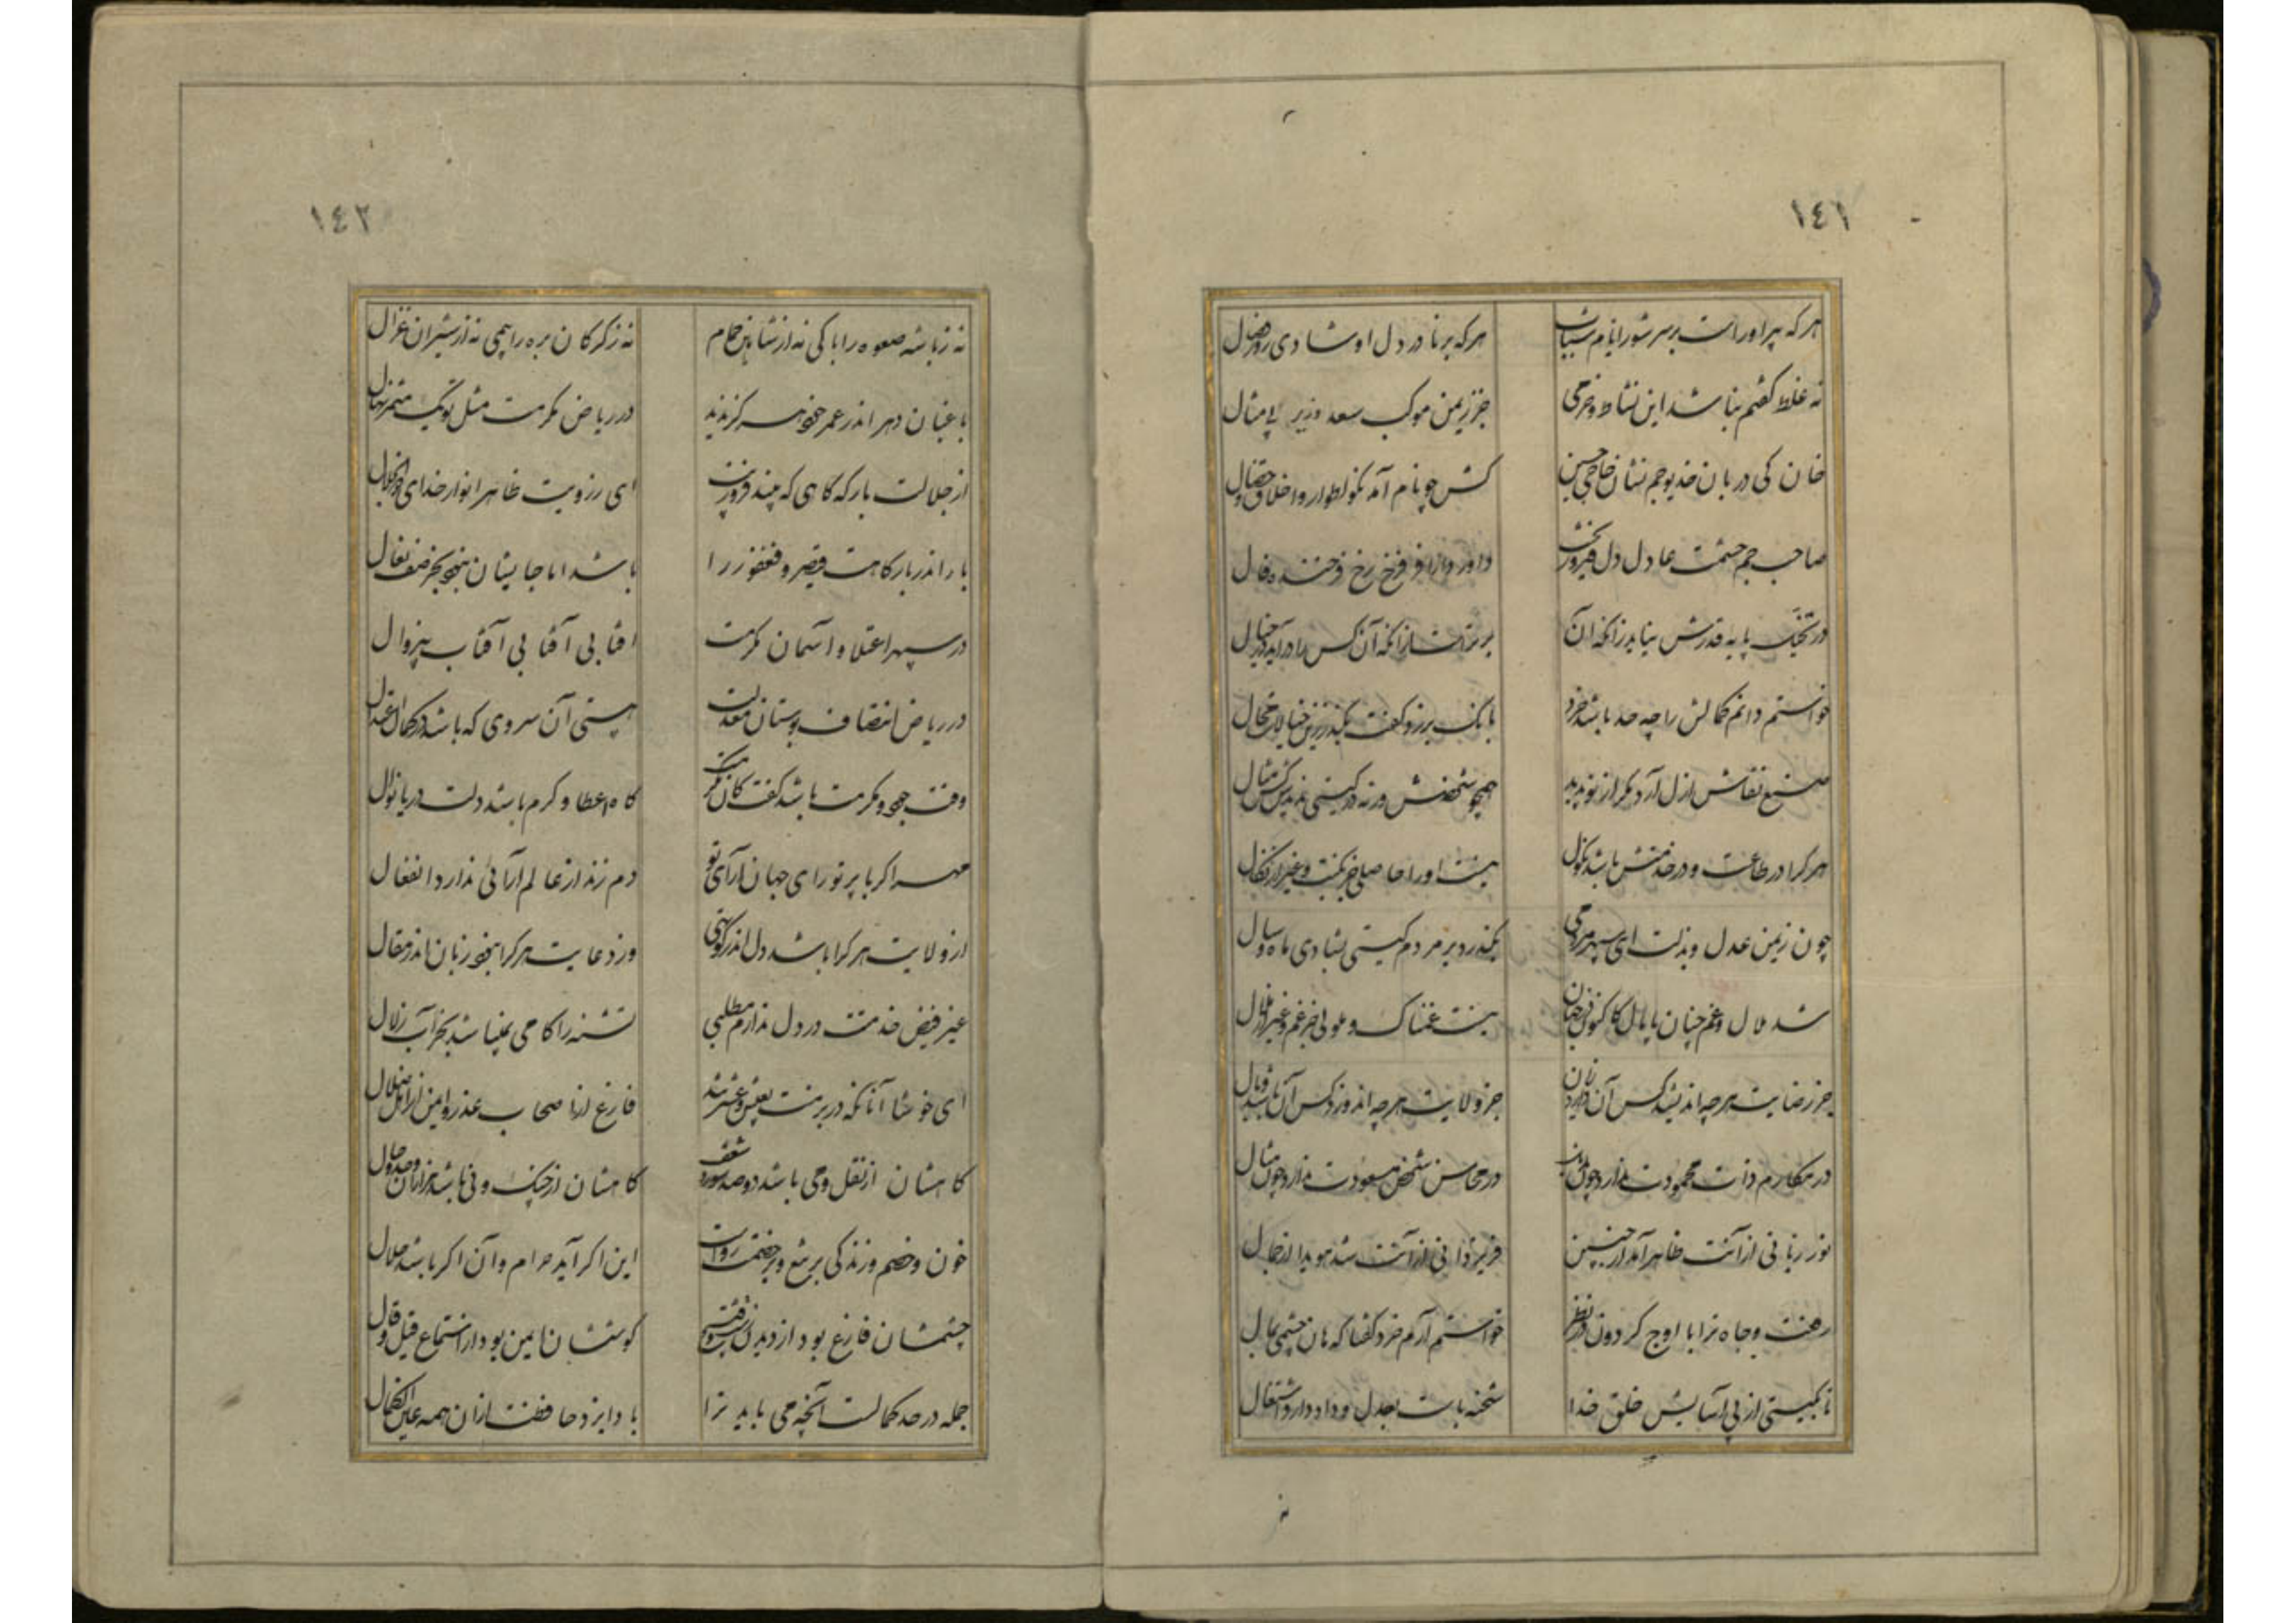 ١٤١
هر که پیر او راست بر سر شور ایام شباب
هر که برنا در دل او شادی روز وصال
نه غلط گفتم نباشد این نشاط و خرمی
جز ز یمن موکب سعد وزیر بی مثال
خان کی دربان خدیو جم نشان حاجی حسین
کش چو نام آمد نکو اطوار و اخلاق و خصال
صاحب جم حشمت عادل دل فیروز بخت
داور دارا فر فرخ رخ فرخنده فال
در تخیل پایه قدرش نیاید زانکه آن
برتر است از آنکه آن کس را درآید در خیال
خواستم دانم کمالش را چه حد باشد خرد
بانک برزد گفت بگذر زین خیالات محال
صنع نقاش ازل آرد مگر از نو پدید
همچو شخصش ورنه در گیتی ندیدش کس مثال
هر کرا در طاعت و در خدمتش باشد نکول
نیست او را حاصلی جز نکبت و غیر از نکال
چون زمین عدل و بذلت ای سپهر مردمی
بگذرد بر مردم گیتی بشادی ماه و سال
شد ملال و غم چنان پامال کاکنون در جهان
نیست غمناک و ملولی جز غم و غیر از ملال
جز رضایت هر چه اندیشد کس آن دارد زیان
جز ولایت هر چه اندوزد کس آن باشد وبال
در مکارم ذات محمودت ندارد چون
در محاسن شخص مسعودت ندارد چون مثال
نور ربانی از آنت ظاهر آمد از جبین
فر یزدانی از آنت شد هویدا از جمال
رفعت و جاه ترا با اوج گردون در نظر
خواستم آرم خرد گفتا که هان چشمی بمال
تا بگیتی از پی آسایش خلق خدا
شحنه بات بعدل و داد دارد اشتغال
١٤٢
نه ز باشه صعوه را باکی نه از شاهین حمام
نه ز گرگان بره را بیمی نه از شیران غزال
باغبان دهر اندر عمر خود سر کز ندید
در ریاض مکرمت مثل تو یک مثمر نهال
از جلالت بارگه گاهی که بیند فرورت
ای ز رویت ظاهر انوار خدای ذوالجلال
بار اندر بارگاهت قیصر و فغفور را
باشد اما جایشان نبود بجز صف نعال
در سپهر اعتلا و آسمان مکرمت
آفتابی آفتابی آفتاب بیزوال
در ریاض انصاف بوستان معدلت
هستی آن سروی که باشد در کمال اعتدال
وقت جود و مکرمت باشد کفت کان کرم
گاه اعطا و کرم باشد دلت دریا نوال
مهر اگر با پرتو رای جهان آرای تو
دم زند از عالم آرائی ندارد انفعال
از ولایت هر کرا باشد دل اندر کوتهی
وز دعایت هر کرا نبود زبان اندر مقال
غیر فیض خدمتت در دل ندارم مطلبی
تشنه را کامی نمیباشد بجز آب زلال
ای خوشا آنانکه در بزمت بعیش و عشرتند
فارغ از اصحاب عذر و ایمن از اهل ضلال
گاهشان از نقل و می باشد دو صد شور و شغف
گاهشان از چنگ و نی باشد هزاران وجد و حال
خون و خصم و زندگی بر تیغ و بر خصمت رواست
این اگر آید حرام و آن اگر باشد حلال
چشمشان فارغ بود از دیدن
گوششان ایمن بود از استماع قیل و قال
جمله در حد کمالست آنچه می باید ترا
بادا یزد حافظت از آن همه عین الکمال